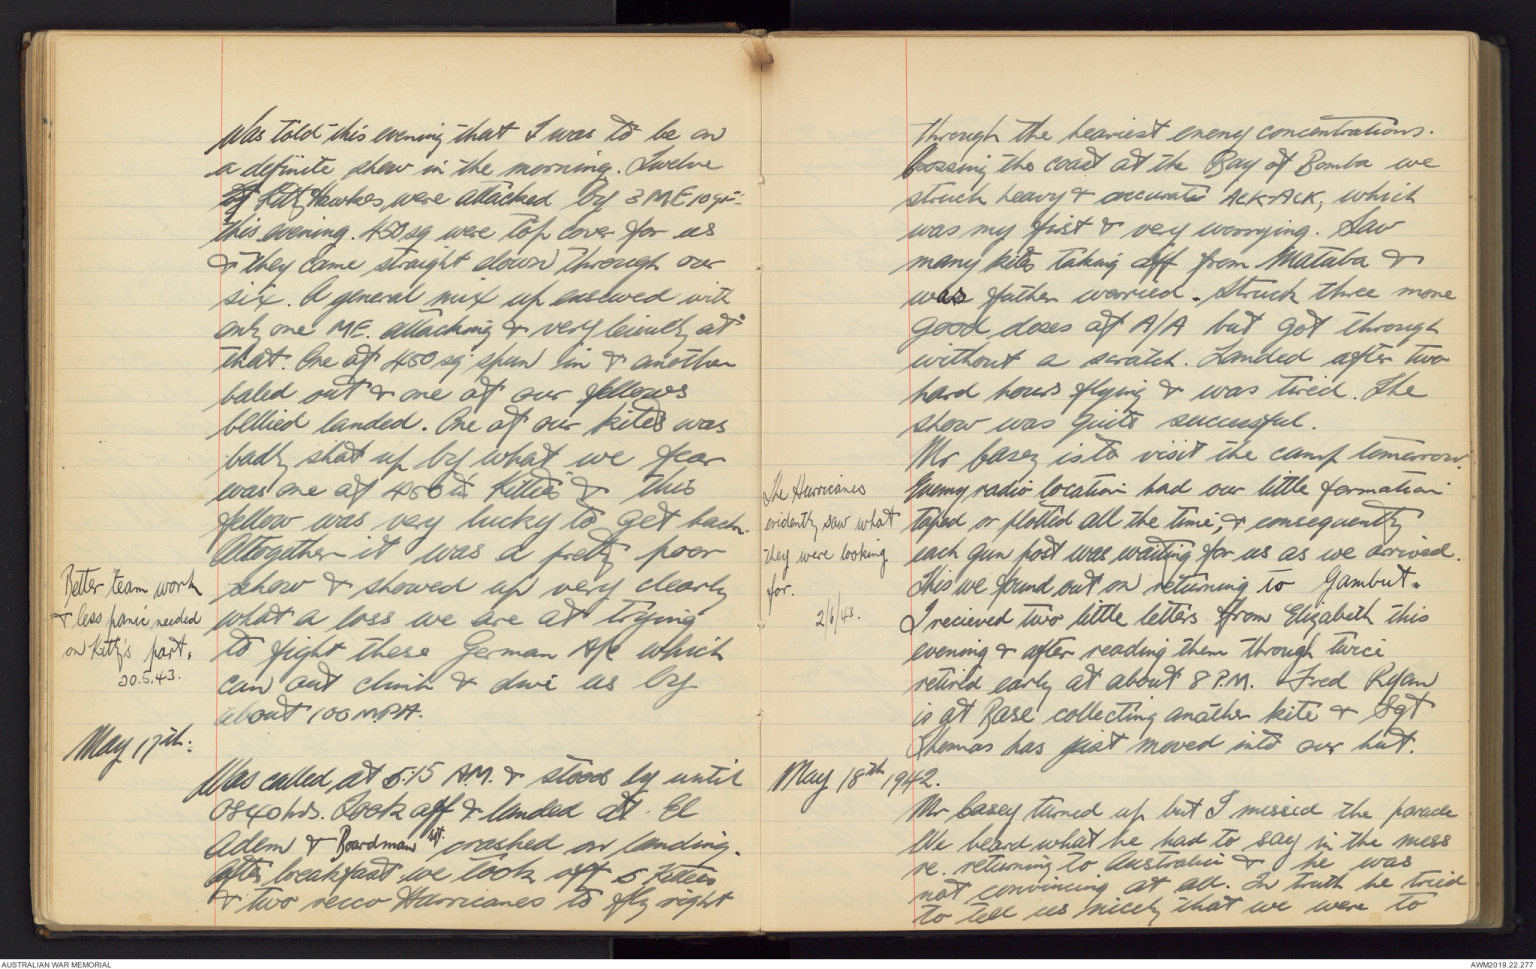 Was told this evening that I was to be on
a definite show in the morning. Twelve
of Kittyhawkes were attacked by 3 ME 109F's
this evening. 450 sq were top cover for us
& they came straight down through our
six. A general mix up ensewed with
only one ME. attacking & very briefly at
that. One of 450 sq spun in & another
baled out & one of our fellows
bellied landed. One of our kites was
badly shot up by what we fear
was one of 450's Kitties & this
fellow was very lucky to get back.
Altogether it was a pretty poor
show & showed up very clearly
what a loss we are at trying
to fight these German A/c which
can out climb & dive us by
about 100 MPH.
Better team work
& less panic needed
on Kitty's part.
20.5.43.
May 17th:
Was called at 5.15 A.M. & stood by until
0840 hrs. Took off & landed at El
Adem & Boardman sgt. crashed on landing.
After breakfast we took off 6 Kitties
& two recco Hurricanes to fly right
through the heaviest enemy concentrations.
Crossing the coast at the Bay of Bomba we
struck heavy & accurate ACK-ACK, which
was my first & very worrying. Saw
many kites taking off from Mataba &
was father worried. Struck three more
good doses of A/A but got through
without a scratch. Landed after two
hard hours flying & was tired. The
show was quite successful.
Mr Casey is to visit the camp tomorrow.
Enemy radio location had our little formation
taped or plotted all the time, & consequently
each gun post was waiting for us as we arrived.
This we found out on returning to Gambut.
The Hurricanes
evidently saw what
they were looking
for.
2/6/43.
I recieved two little letters from Elizabeth this
evening & after reading them through twice
retired early at about 8 P.M. Fred Ryan
is at Base collecting another kite & Sgt
Thomas has just moved into our hut.
May 18th 1942.
Mr Casey turned up but I missed the parade
We heard what he had to say in the mess
re. returning to Australia & he was
not convincing at all. In truth he tried
to tell us nicely that we were to
AUSTRALIAN WAR MEMORIAL
AWM2019.22.277